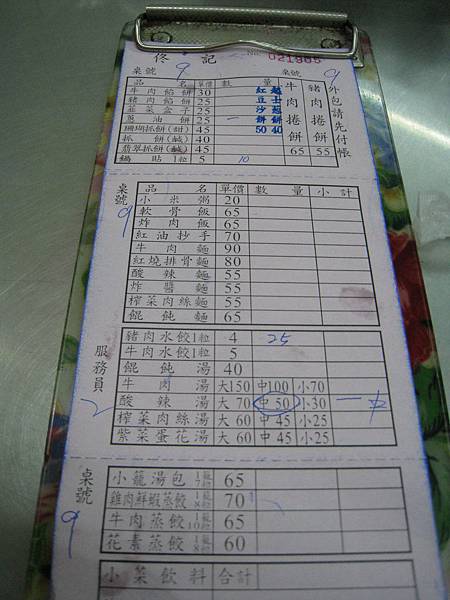 佟記 No. 021905
桌號 9 桌號 9
品名 單價 數量
牛肉餡餅 30
豬肉餡餅 25
韮菜盒子 25
蔥油餅 25 一
珊瑚抓餅(甜) 45
抓餅(鹹) 40
翡翠抓餅(鹹) 45
鍋貼1粒 5 10
紅豆沙餅 50
起士起餅 40
牛肉捲餅 65
豬肉捲餅 55
外包請先付帳
桌號 9
品名 單價 數量 小計
小米粥 20
軟骨飯 65
炸肉飯 65
紅油抄手 70
牛肉麵 90
紅燒排骨麵 80
酸辣麵 55
炸醬麵 55
榨菜肉絲麵 55
餛飩麵 65
服務員 2
豬肉水餃1粒 4 25
牛肉水餃1粒 5
餛飩湯 40
牛肉湯 大150 中100 小70
酸辣湯 大70 中50 小30 一中
榨菜肉絲湯 大60 中45 小25
紫菜蛋花湯 大60 中45 小25
桌號 9
小籠湯包 1籠7粒 65
雞肉鮮蝦蒸餃 1籠8粒 70
牛肉蒸餃 1籠10粒 65
花素蒸餃 1籠8粒 60
小菜飲料 合計